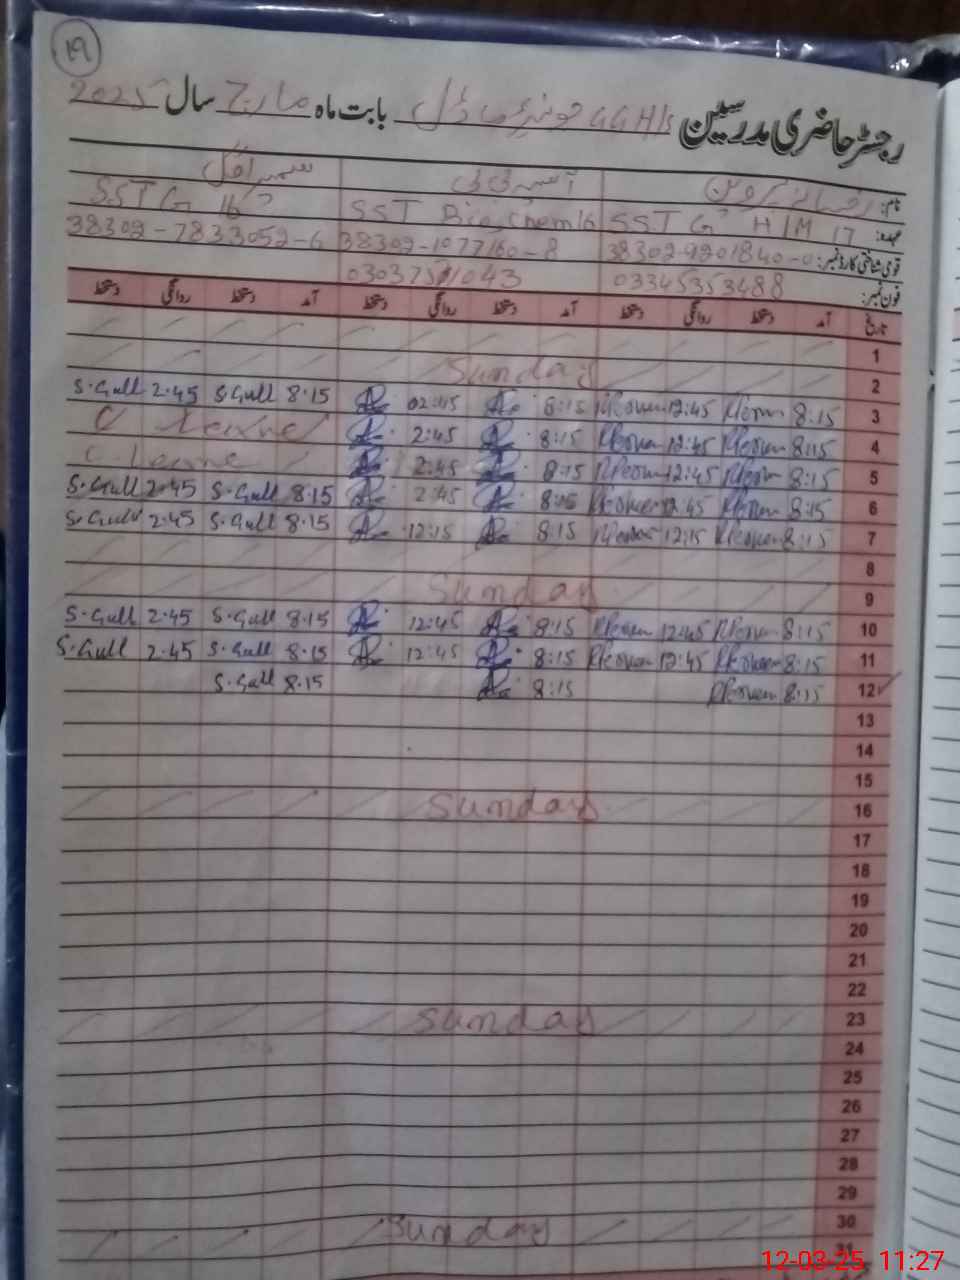 19
رجسٹر حاضری مدرسین GGHS بابت ماہ مارچ سال 2025
نام: رخسانہ پروین
عہدہ: SST G H/M 17 SST Bio, Chem 16 SST G 16
قومی شناختی کارڈ نمبر: 38302-9201840-0 38302-1077160-8 38302-7833052-6
فون نمبر: 03345353488
تاریخ آمد دستخط روانگی دستخط آمد دستخط روانگی دستخط آمد دستخط روانگی دستخط
1
2 Sunday
3 8:15 12:45 8:15 02:45 8.15 S.Gull 2.45 S.Gull
4 8:15 12:45 8:15 2:45 C Leave
5 8:15 12:45 8:15 2:45 C Leave
6 8:15 12:45 8:15 2:45 8.15 S.Gull 2.45 S.Gull
7 8:15 12:15 8:15 12:15 8.15 S.Gull 2.45 S.Gull
8
9 Sunday
10 8:15 12:45 8:15 12:45 8.15 S.Gull 2.45 S.Gull
11 8:15 12:45 8:15 12:45 8.15 S.Gull 2.45 S.Gull
12 8:15 8:15 8.15 S.Gull
13
14
15
16 Sunday
17
18
19
20
21
22
23 Sunday
24
25
26
27
28
29
30 Sunday
31
12-03-25 11:27